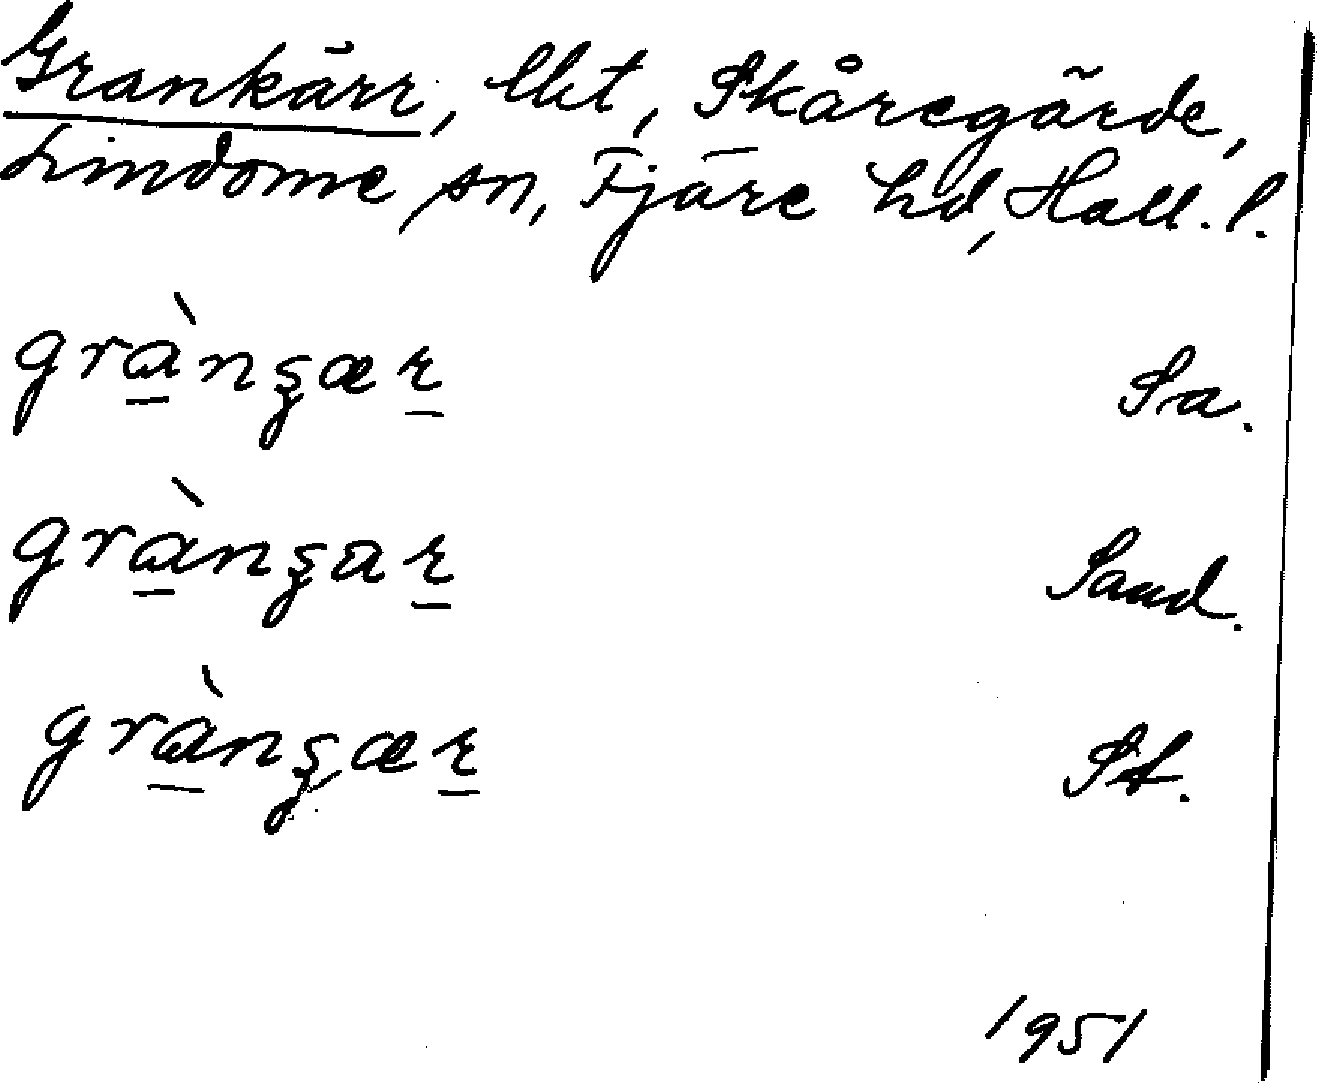 Grankärr, lht, Skåregärde,
Lindome sn, Fjäre hd, Hall. l.
grànʂær Sa.
grànʂar Sand.
grànʂær St.
1951